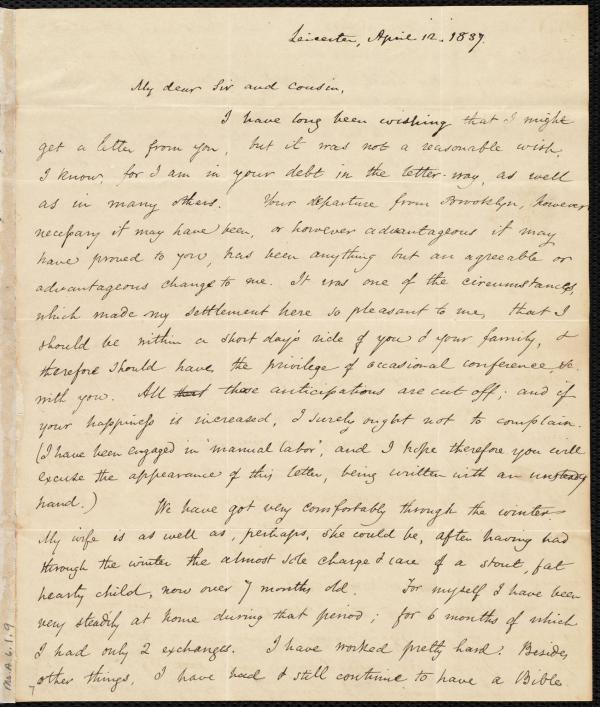 Leicester, April 12. 1837.
My dear Sir and cousin,
I have long been wishing that I might
get a letter from you, but it was not a reasonable wish,
I know, for I am in your debt in the letter-way, as well
as in many others. Your departure from Brooklyn, however
necessary it may have been, or however advantageous it may
have proved to you, has been anything but an agreeable or
advantageous change to me. It was one of the circumstances,
which made my settlement here so pleasant to me, that I
should be within a short day's ride of you & your family, &
therefore should have the privilege of occasional conference &c.
with you. All that these anticipations are cut off; and if
your happiness is increased, I surely ought not to complain.
(I have been engaged in 'manual labor', and I hope therefore you will
excuse the appearance of this letter, being written with an unsteady
hand.) We have got very comfortably through the winter.
My wife is as well as, perhaps, she could be, after having had
through the winter the almost sole charge & care of a stout, fat
hearty child, now over 7 months old. For myself I have been
very steadily at home during that period; for 6 months of which
I had only 2 exchanges. I have worked pretty hard? Besides
other things, I have had & still continue to have a Bible
Ms.A.6.1.9
7